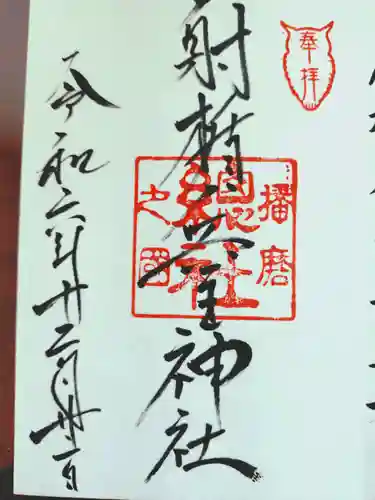 奉拝
射楯兵主神社
播磨
總社
之國
令和六年十二月